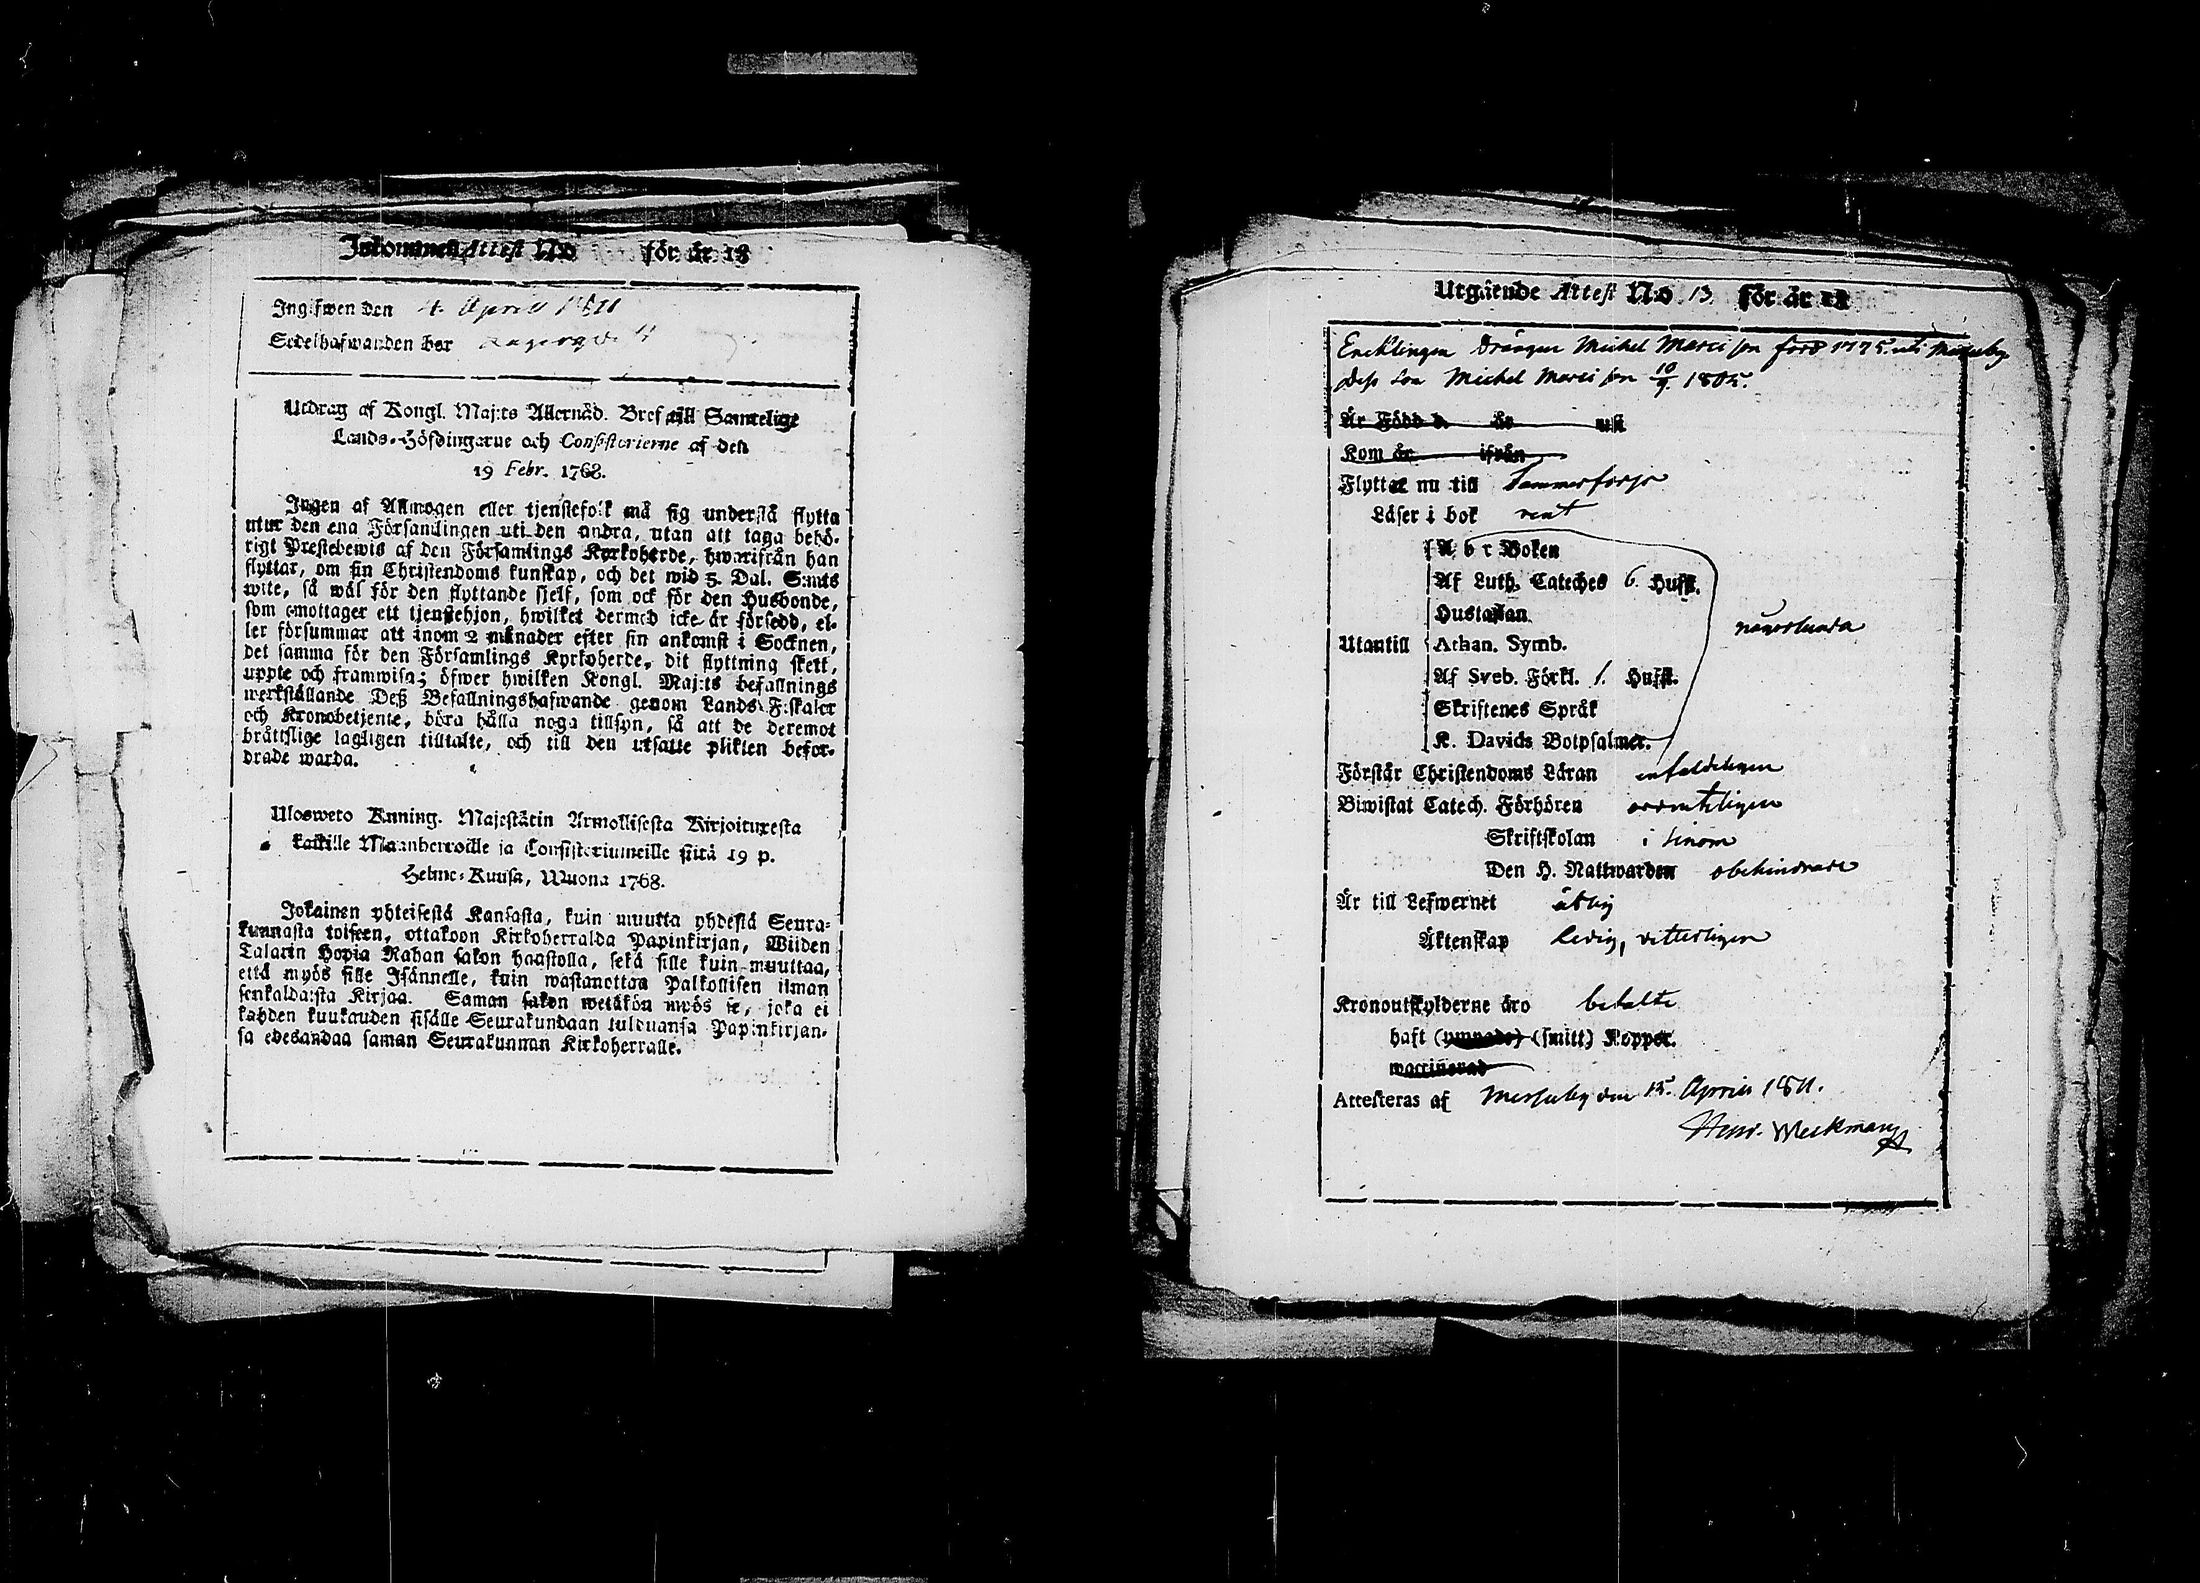 Inkommen Attest No för år 18
Ingifwen den 4. April 1811
Sedelhafwanden bor
Utdrag af Kongl. Maj:ts Allernåd. Bref till Samtelige
Lands-Höfdingarne och Consistorierne af den
19 Febr. 1768.
Ingen af Allmogen eller tjenstefolk må sig understå flytta
utur den ena Församlingen uti den andra, utan att taga behö-
rigt Prestebewis af den Församlings Kyrkoherde, hwarifrån han
flyttar, om sin Christendoms kunskap, och det wid 5. Dal. S:mts
wite, så wäl för den flyttande sjelf, som ock för den Husbonde,
som emottager ett tjenstehjon, hwilket dermed icke är försedd, el-
ler försummar att inom 2 månader efter sin ankomst i Socknen,
det samma för den Församlings Kyrkoherde, dit flyttning skett,
uppte och framwisa; öfwer hwilken Kongl. Maj:ts befallnings
werkställande Deß Befallningshafwande genom Lands-Fiskaler
och Kronobetjente, böra hålla noga tillsyn, så att de deremot
bråttslige lagligen tilltalte, och till den utsatte plikten befor-
drade warda.
Ulosweto Kuning. Majestätin Armollisesta Kirjoituxesta
kaikille Maanherroille ja Consistoriumeille siitä 19 p.
Helme-Kuusa, Wuona 1768.
Jokainen yhteisestä Kansasta, kuin muutta yhdestä Seura-
kunnasta toiseen, ottakoon Kirkoherralda Papinkirjan, Wiiden
Talarin Hopia Rahan sakon haastolla, sekä sille kuin muuttaa,
että myös sille Isännelle, kuin wastanottaa Palkollisen ilman
senkaldaista Kirjaa. Saman sakon wetäkön myös se, joka ei
kahden kuukauden sisälle Seurakundaan tulduansa Papinkirjan-
sa edesandaa saman Seurakunnan Kirkoherralle.
Utgående Attest No 13. för år 18
Enklingen Drängen Michel Marci son född 1775. uti Messuby
dess son Michel Marci son 10/9 1805.
Är Född d. år uti
Kom år ifrån
Flyttar nu till Tammerfors
Läser i bok rent
A b c Boken
Af Luth. Cateches 6. Hufst.
Hustaflan
Utantill Athan. Symb.
Af Sveb. Förkl. 1. Hufst.
Skriftenes Språk
K. Davids Botpsalmer.
någorlunda
Förstår Christendoms Läran enfaldeligen
Biwistat Catech. Förhören ordenteligen
Skriftskolan i sinom
Den H. Nattwarden obehindrade
Är till Lefwernet ärbig
Äktenskap ledig, vitterligen
Kronoutskylderne äro betalte
haft (smitt) Koppor.
waccinerad
Attesteras af Messuby den 15. Aprill 1811.
Henr. Weckman